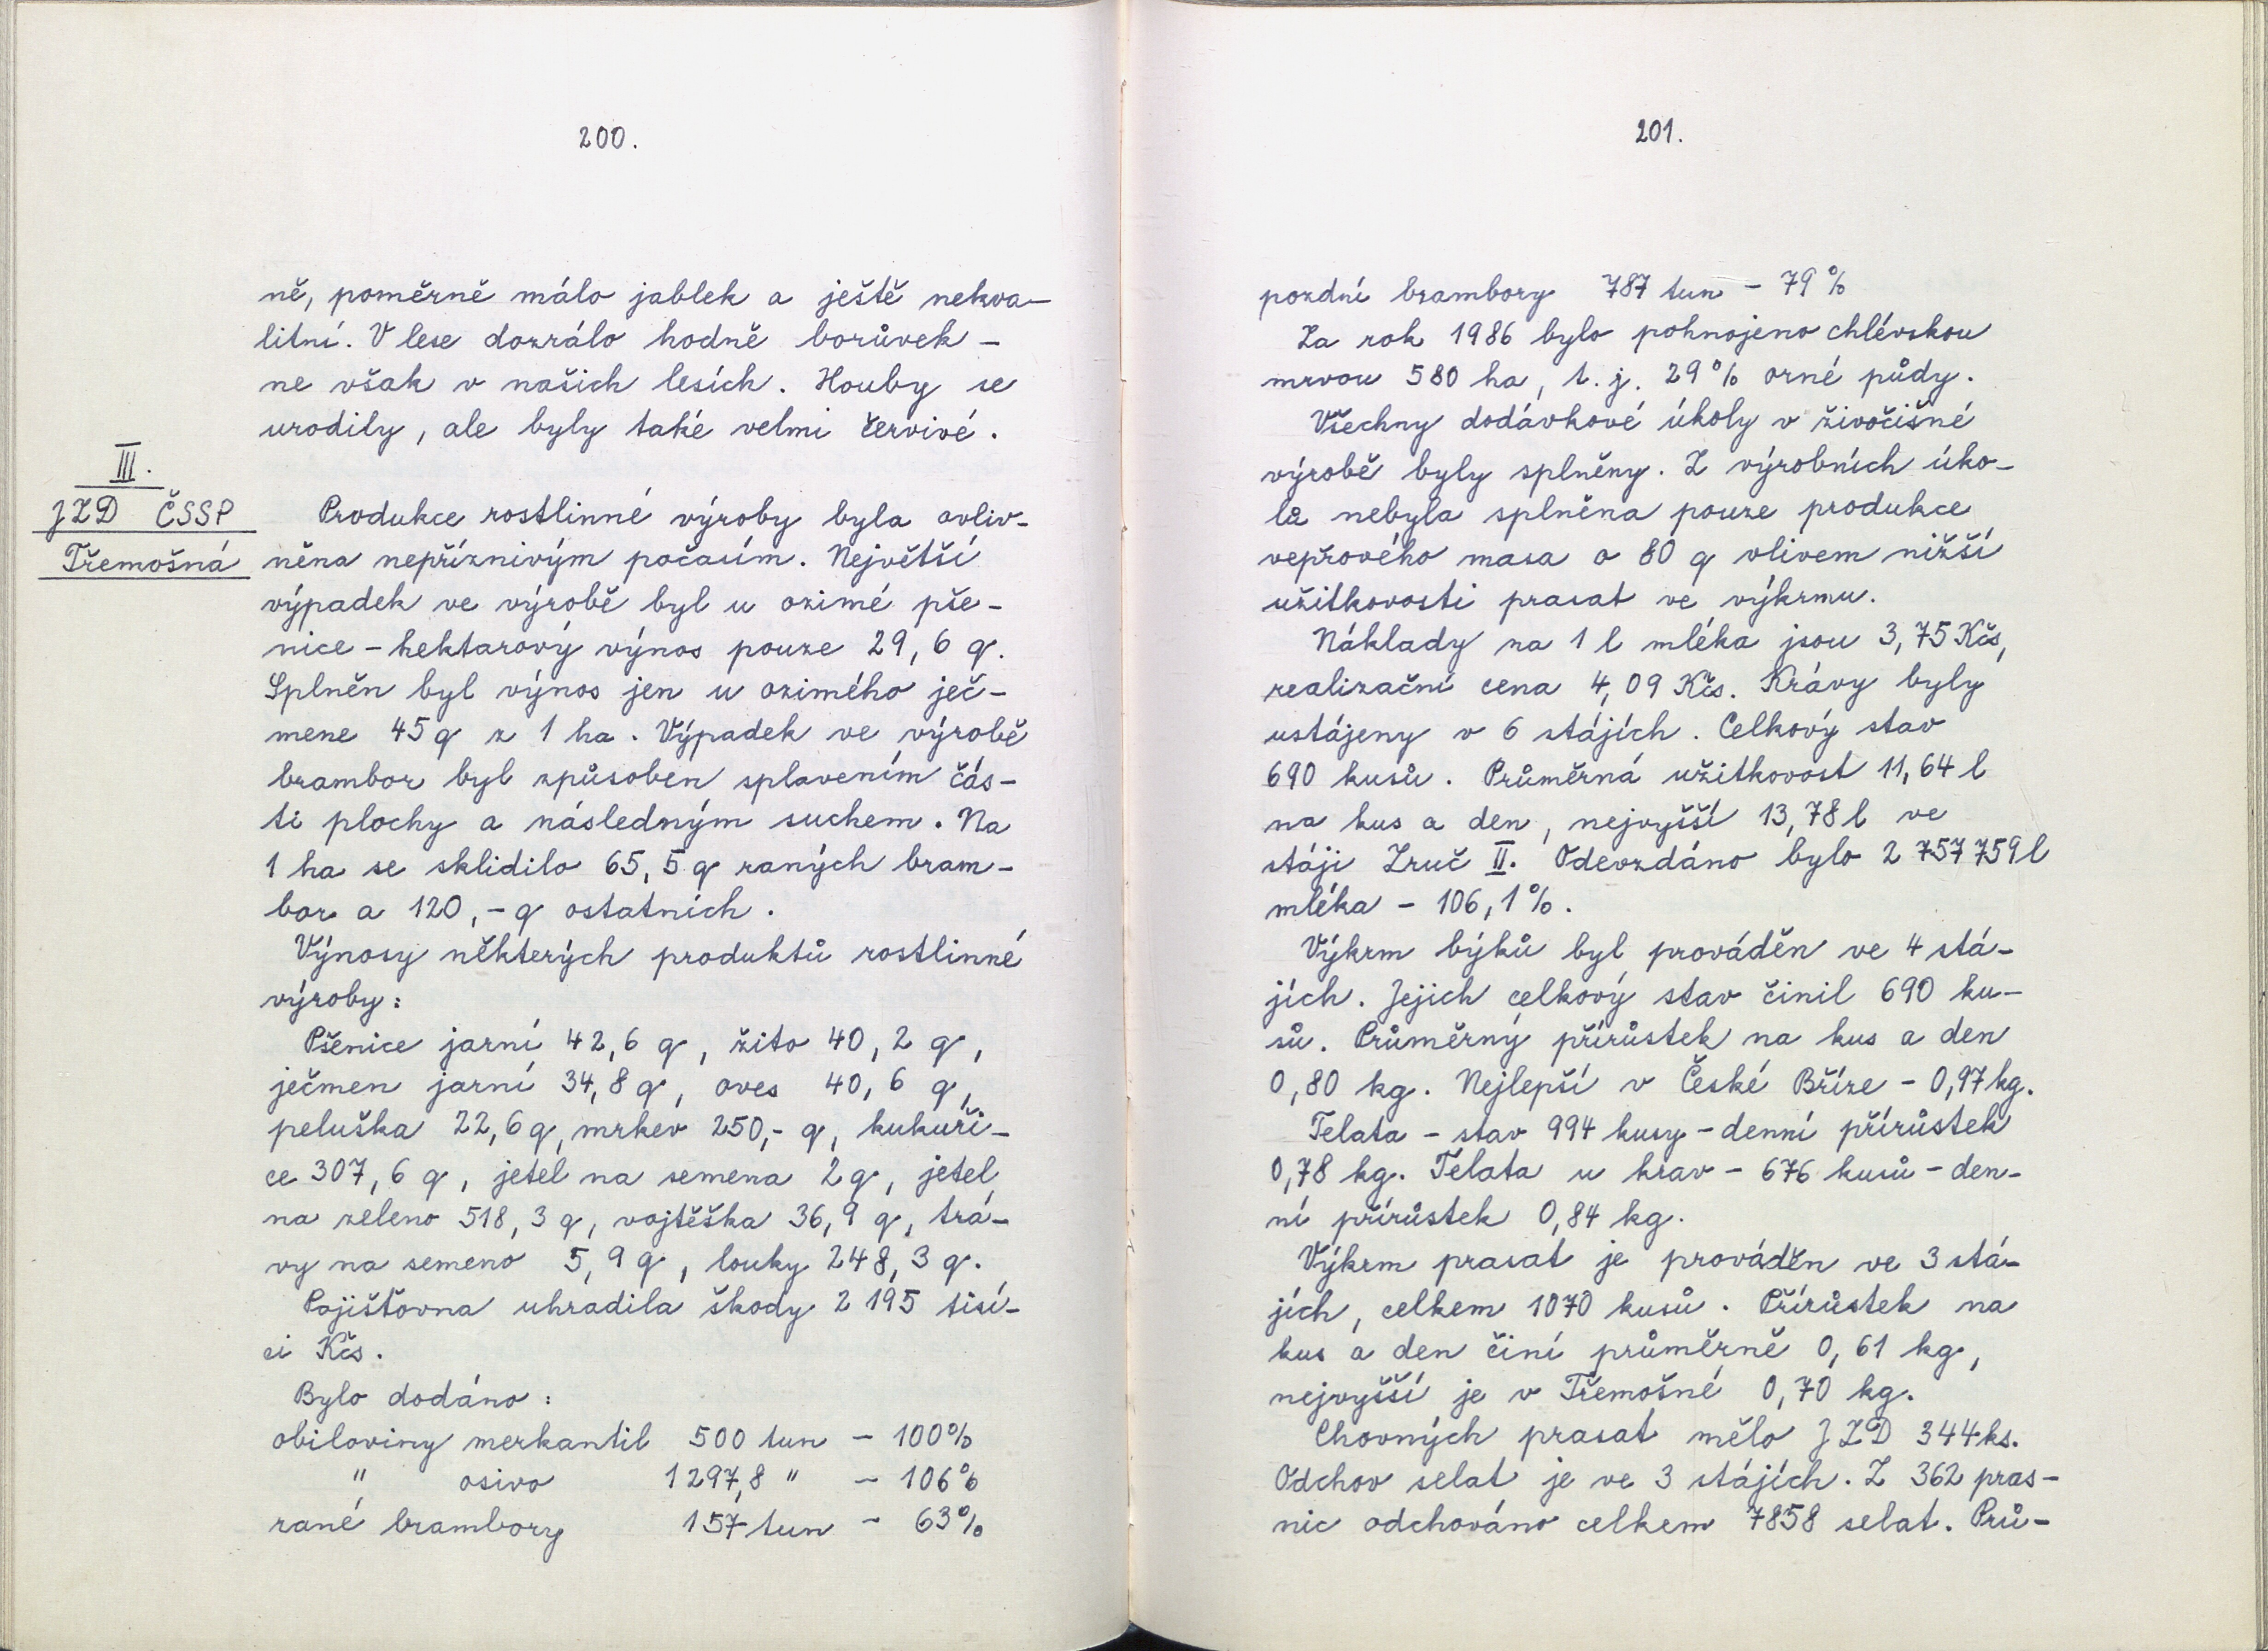 200.
ně, poměrně málo jablek a ještě nekva-
litní. V lese dozrálo hodně borůvek -
ne však v našich lesích. Houby se
urodily, ale byly také velmi červivé.
III.
JZD ČSSP
Třemošná
Produkce rostlinné výroby byla ovliv-
něna nepříznivým počasím. Největší
výpadek ve výrobě byl u ozimé pše-
nice - hektarový výnos pouze 29,6 q.
Splněn byl výnos jen u ozimého ječ-
mene 45 q z 1 ha. Výpadek ve výrobě
brambor byl způsoben splavením čás-
ti plochy a následným suchem. Na
1 ha se sklidilo 65,5 q raných bram-
bor a 120,- q ostatních.
Výnosy některých produktů rostlinné
výroby:
Pšenice jarní 42,6 q, žito 40,2 q,
ječmen jarní 34,8 q, oves 40,6 q,
peluška 22,6 q, mrkev 250,- q, kukuři-
ce 307,6 q, jetel na semena 2 q, jetel
na zeleno 518,3 q, vojtěška 36,9 q, trá-
vy na semeno 5,9 q, louky 248,3 q.
Pojišťovna uhradila škody 2 195 tisí-
ci Kčs.
Bylo dodáno:
obiloviny merkantil 500 tun - 100%
" osivo 1 297,8 " - 106%
rané brambory 157 tun - 63%
201.
pozdní brambory 787 tun - 79%
Za rok 1986 bylo pohnojeno chlévskou
mrvou 580 ha, t. j. 29% orné půdy.
Všechny dodávkové úkoly v živočišné
výrobě byly splněny. Z výrobních úko-
lů nebyla splněna pouze produkce
vepřového masa o 80 q vlivem nižší
užitkovosti prasat ve výkrmu.
Náklady na 1 l mléka jsou 3,75 Kčs,
realizační cena 4,09 Kčs. Krávy byly
ustájeny v 6 stájích. Celkový stav
690 kusů. Průměrná užitkovost 11,64 l
na kus a den, nejvyšší 13,78 l ve
stáji Zruč II. Odevzdáno bylo 2 757 759 l
mléka - 106,1%.
Výkrm býků byl prováděn ve 4 stá-
jích. Jejich celkový stav činil 690 ku-
sů. Průměrný přírůstek na kus a den
0,80 kg. Nejlepší v České Bříze - 0,97 kg.
Telata - stav 994 kusy - denní přírůstek
0,78 kg. Telata u krav - 676 kusů - den-
ní přírůstek 0,84 kg.
Výkrm prasat je prováděn ve 3 stá-
jích, celkem 1070 kusů. Přírůstek na
kus a den činí průměrně 0,61 kg,
nejvyšší je v Třemošné 0,70 kg.
Chovných prasat mělo JZD 344 ks.
Odchov selat je ve 3 stájích. Z 362 pras-
nic odchováno celkem 7858 selat. Prů-